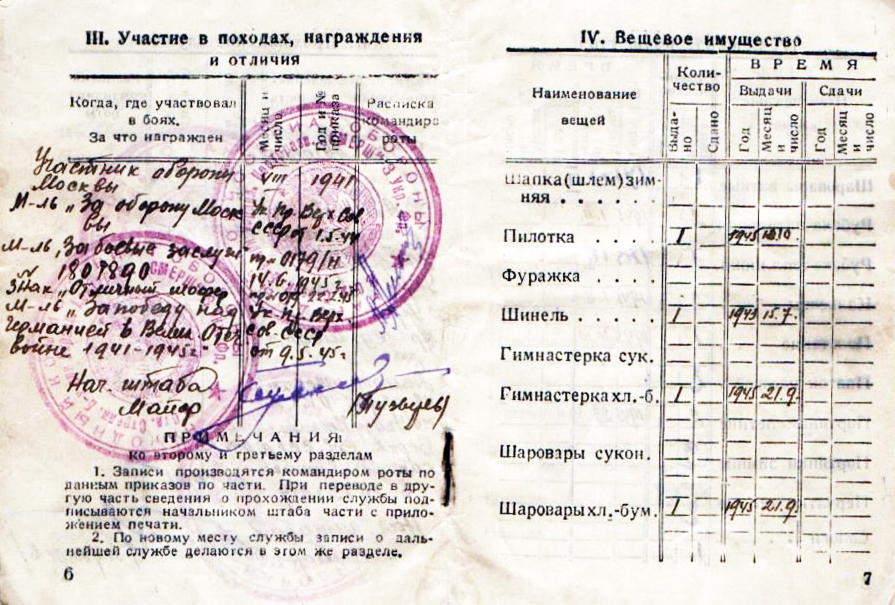 III. Участие в походах, награждения
и отличия
Когда, где участвовал
в боях.
За что награжден
Месяц и
число
Год и №
приказа
Расписка
командира
роты
Участник обороны
Москвы
VIII 1941
М-ль „За оборону Моск
вы
Ук. Пр. Верх Сов.
СССР от 1.5.44
М-ль „За боевые заслуги"
1807890
пр-№ 0179/н
14.6.1945г.
Знак „Отличный шофер
М-ль „За победу над
Ук. Пр. Верх
Германией в Вели. Отеч
Сов. СССР
войне 1941-1945г"
от 9.5.45г
Нач. штаба
Майор
(Пузвцев)
ПРИМЕЧАНИЯ
ко второму и третьему разделам
1. Записи производятся командиром роты по
данным приказов по части. При переводе в дру-
гую часть сведения о прохождении службы под-
писываются начальником штаба части с прило-
жением печати.
2. По новому месту службы записи о даль-
нейшей службе делаются в этом же разделе.
6
IV. Вещевое имущество
Наименование
вещей
Коли-
чество
ВРЕМЯ
Выдачи
Сдачи
Выда-
но
Сдано
Год
Месяц
и
число
Год
Месяц
и
число
Шапка (шлем) зим-
няя . . . . . .
Пилотка . . . . I 1945 10.10
Фуражка . . . .
Шинель . . . . . I 1945 15.7.
Гимнастерка сук.
Гимнастерка хл.-б. I 1945 21.9.
Шаровары сукон.
Шаровары хл.-бум. I 1945 21.9.
7